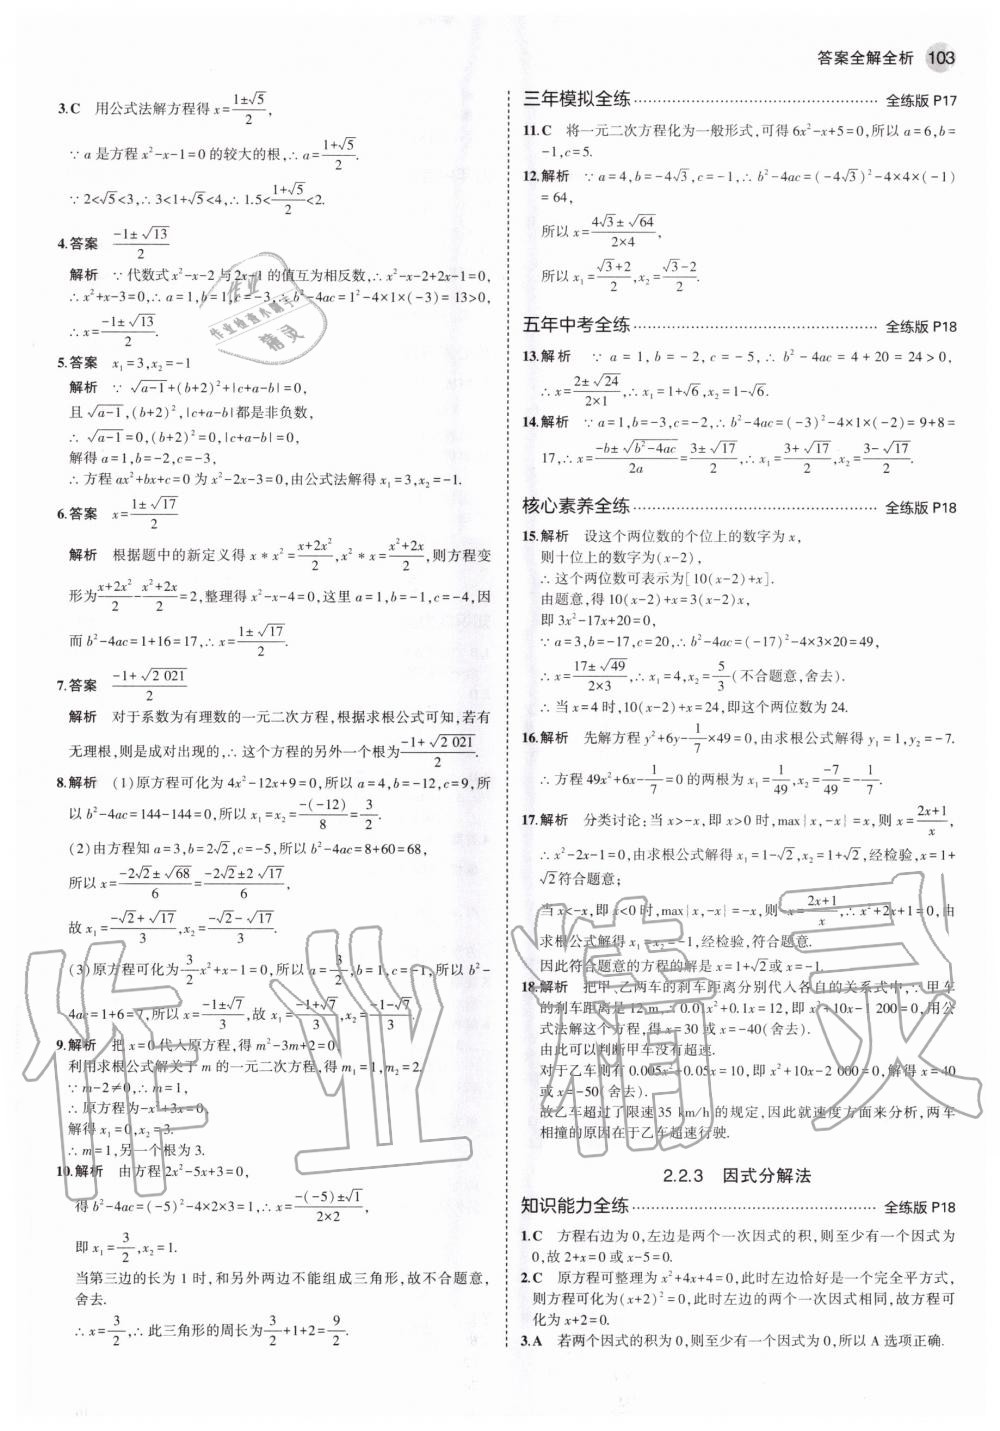 答案全解全析 103
3.C 用公式法解方程得 x=(1±√5)/2,
∵a 是方程 x²-x-1=0 的较大的根,∴a=(1+√5)/2.
∵2<√5<3,∴3<1+√5<4,∴1.5<(1+√5)/2<2.
4.答案 (-1±√13)/2
解析 ∵代数式 x²-x-2 与 2x-1 的值互为相反数,∴x²-x-2+2x-1=0,
∴x²+x-3=0,∴a=1,b=1,c=-3,∴b²-4ac=1²-4×1×(-3)=13>0,
∴x=(-1±√13)/2.
5.答案 x₁=3,x₂=-1
解析 ∵√(a-1)+(b+2)²+|c+a-b|=0,
且√(a-1),(b+2)²,|c+a-b|都是非负数,
∴√(a-1)=0,(b+2)²=0,|c+a-b|=0,
解得 a=1,b=-2,c=-3,
∴方程 ax²+bx+c=0 为 x²-2x-3=0,由公式法解得 x₁=3,x₂=-1.
6.答案 x=(1±√17)/2
解析 根据题中的新定义得 x*x²=(x+2x²)/2,x²*x=(x²+2x)/2,则方程变
形为(x+2x²)/2-(x²+2x)/2=2,整理得 x²-x-4=0,这里 a=1,b=-1,c=-4,因
而 b²-4ac=1+16=17,∴x=(1±√17)/2.
7.答案 (-1+√2 021)/2
解析 对于系数为有理数的一元二次方程,根据求根公式可知,若有
无理根,则是成对出现的,∴这个方程的另外一个根为(-1+√2 021)/2.
8.解析 (1)原方程可化为 4x²-12x+9=0,所以 a=4,b=-12,c=9,所
以 b²-4ac=144-144=0,所以 x₁=x₂=-(-12)/8=3/2.
(2)由方程知 a=3,b=2√2,c=-5,所以 b²-4ac=8+60=68,
所以 x=(-2√2±√68)/6=(-2√2±2√17)/6,
故 x₁=(-√2+√17)/3,x₂=(-√2-√17)/3.
(3)原方程可化为(3/2)x²+x-1=0,所以 a=3/2,b=1,c=-1,所以 b²-
4ac=1+6=7,所以 x=(-1±√7)/3,故 x₁=(-1+√7)/3,x₂=(-1-√7)/3.
9.解析 把 x=0 代入原方程,得 m²-3m+2=0.
利用求根公式解关于 m 的一元二次方程,得 m₁=1,m₂=2.
∵m-2≠0,∴m=1,
∴原方程为-x²+3x=0,
解得 x₁=0,x₂=3.
∴m=1,另一个根为 3.
10.解析 由方程 2x²-5x+3=0,
得 b²-4ac=(-5)²-4×2×3=1,∴x=(-(-5)±√1)/(2×2),
即 x₁=3/2,x₂=1.
当第三边的长为 1 时,和另外两边不能组成三角形,故不合题意,
舍去.
∴x=3/2,∴此三角形的周长为3/2+1+2=9/2.
三年模拟全练 全练版 P17
11.C 将一元二次方程化为一般形式,可得 6x²-x+5=0,所以 a=6,b=
-1,c=5.
12.解析 ∵a=4,b=-4√3,c=-1,∴b²-4ac=(-4√3)²-4×4×(-1)
=64,
所以 x=(4√3±√64)/(2×4),
所以 x₁=(√3+2)/2,x₂=(√3-2)/2.
五年中考全练 全练版 P18
13.解析 ∵a=1,b=-2,c=-5,∴b²-4ac=4+20=24>0,
∴x=(2±√24)/(2×1),∴x₁=1+√6,x₂=1-√6.
14.解析 ∵a=1,b=-3,c=-2,∴b²-4ac=(-3)²-4×1×(-2)=9+8=
17,∴x=(-b±√(b²-4ac))/2a=(3±√17)/2,∴x₁=(3+√17)/2,x₂=(3-√17)/2.
核心素养全练 全练版 P18
15.解析 设这个两位数的个位上的数字为 x,
则十位上的数字为(x-2),
∴这个两位数可表示为[10(x-2)+x].
由题意,得 10(x-2)+x=3(x-2)x,
即 3x²-17x+20=0,
∵a=3,b=-17,c=20,∴b²-4ac=(-17)²-4×3×20=49,
∴x=(17±√49)/(2×3),∴x₁=4,x₂=5/3(不合题意,舍去).
∴当 x=4 时,10(x-2)+x=24,即这个两位数为 24.
16.解析 先解方程 y²+6y-1/7×49=0,由求根公式解得 y₁=1,y₂=-7.
∴方程 49x²+6x-1/7=0 的两根为 x₁=1/49,x₂=-7/49=-1/7.
17.解析 分类讨论:当 x>-x,即 x>0 时,max{x,-x}=x,则 x=(2x+1)/x,
∴x²-2x-1=0,由求根公式解得 x₁=1-√2,x₂=1+√2,经检验,x=1+
√2符合题意;
当 x<-x,即 x<0 时,max{x,-x}=-x,则-x=(2x+1)/x,∴x²+2x+1=0,由
求根公式解得 x₁=x₂=-1,经检验,符合题意.
因此符合题意的方程的解是 x=1+√2或 x=-1.
18.解析 把甲、乙两车的刹车距离分别代入各自的关系式中,∵甲车
的刹车距离是 12 m,∴0.01x²+0.1x=12,即 x²+10x-1 200=0,用公
式法解这个方程,得 x=30 或 x=-40(舍去).
由此可以判断甲车没有超速.
对于乙车则有 0.005x²+0.05x=10,即 x²+10x-2 000=0,解得 x=40
或 x=-50(舍去).
故乙车超过了限速 35 km/h 的规定,因此就速度方面来分析,两车
相撞的原因在于乙车超速行驶.
2.2.3 因式分解法
知识能力全练 全练版 P18
1.C 方程右边为 0,左边是两个一次因式的积,则至少有一个因式
为 0,故 2+x=0 或 x-5=0.
2.C 原方程可整理为 x²+4x+4=0,此时左边恰好是一个完全平方式,
则方程可化为(x+2)²=0,此时左边的两个一次因式相同,故方程可
化为 x+2=0.
3.A 若两个因式的积为 0,则至少有一个因式为 0,所以 A 选项正确.
作业精灵
作业
作业检查小助手
精灵